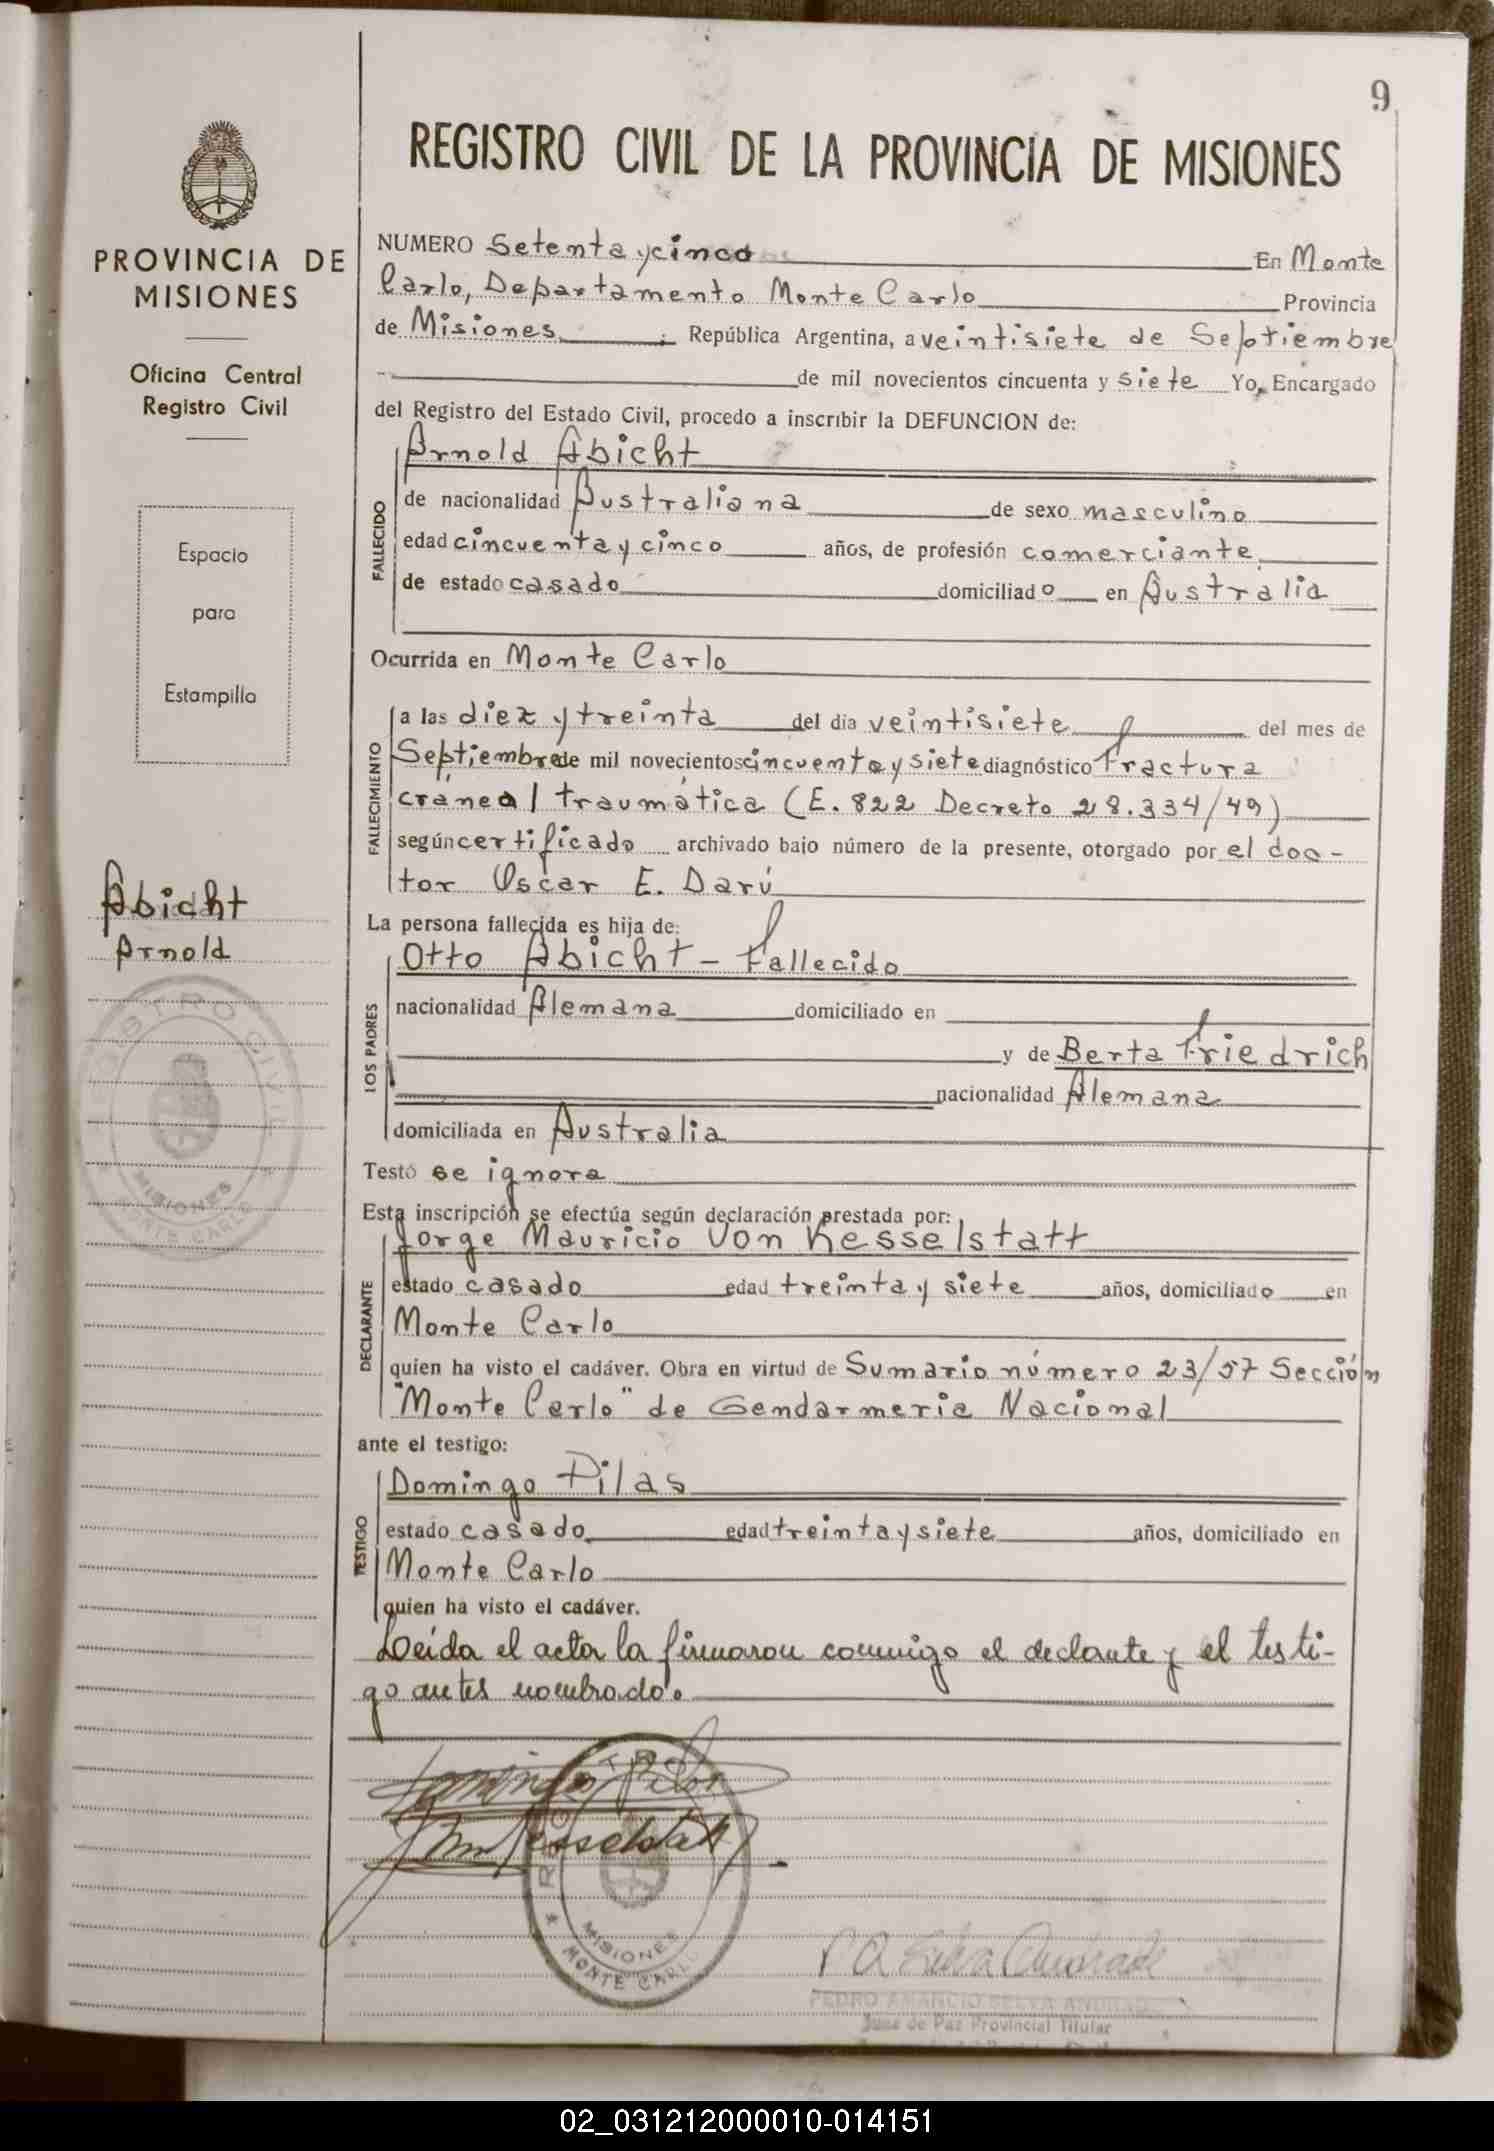 9
REGISTRO CIVIL DE LA PROVINCIA DE MISIONES
PROVINCIA DE
MISIONES
Oficina Central
Registro Civil
Espacio
para
Estampilla
Abicht
Arnold
REGISTRO CIVIL
MISIONES
MONTE CARLO
NUMERO Setenta y cinco En Monte
Carlo, Departamento Monte Carlo Provincia
de Misiones ; República Argentina, a veintisiete de Septiembre
de mil novecientos cincuenta y siete Yo, Encargado
del Registro del Estado Civil, procedo a inscribir la DEFUNCION de:
FALLECIDO
Arnold Abicht
de nacionalidad Australiana de sexo masculino
edad cincuenta y cinco años, de profesión comerciante
de estado casado domiciliado en Australia
Ocurrida en Monte Carlo
FALLECIMIENTO
a las diez y treinta del día veintisiete del mes de
Septiembre de mil novecientos cincuenta y siete diagnóstico Fractura
craneal traumática (E. 822 Decreto 28.334/49)
según certificado archivado bajo número de la presente, otorgado por el doc-
tor Oscar E. Darú
La persona fallecida es hija de:
LOS PADRES
Otto Abicht - Fallecido
nacionalidad Alemana domiciliado en
y de Berta Friedrich
nacionalidad Alemana
domiciliada en Australia
Testó se ignora
Esta inscripción se efectúa según declaración prestada por:
DECLARANTE
Jorge Mauricio Von Kesselstatt
estado casado edad treinta y siete años, domiciliado en
Monte Carlo
quien ha visto el cadáver. Obra en virtud de Sumario número 23/57 Sección
"Monte Carlo" de Gendarmeria Nacional
ante el testigo:
TESTIGO
Domingo Pilas
estado casado edad treinta y siete años, domiciliado en
Monte Carlo
quien ha visto el cadáver.
Leída el acta la firmaron conmigo el declante y el testi-
go antes nombrado.
Domingo Pilas
MISIONES
MONTE CARLO
P A Silva Andrade
Juez de Paz Provincial Titular
02_031212000010-014151